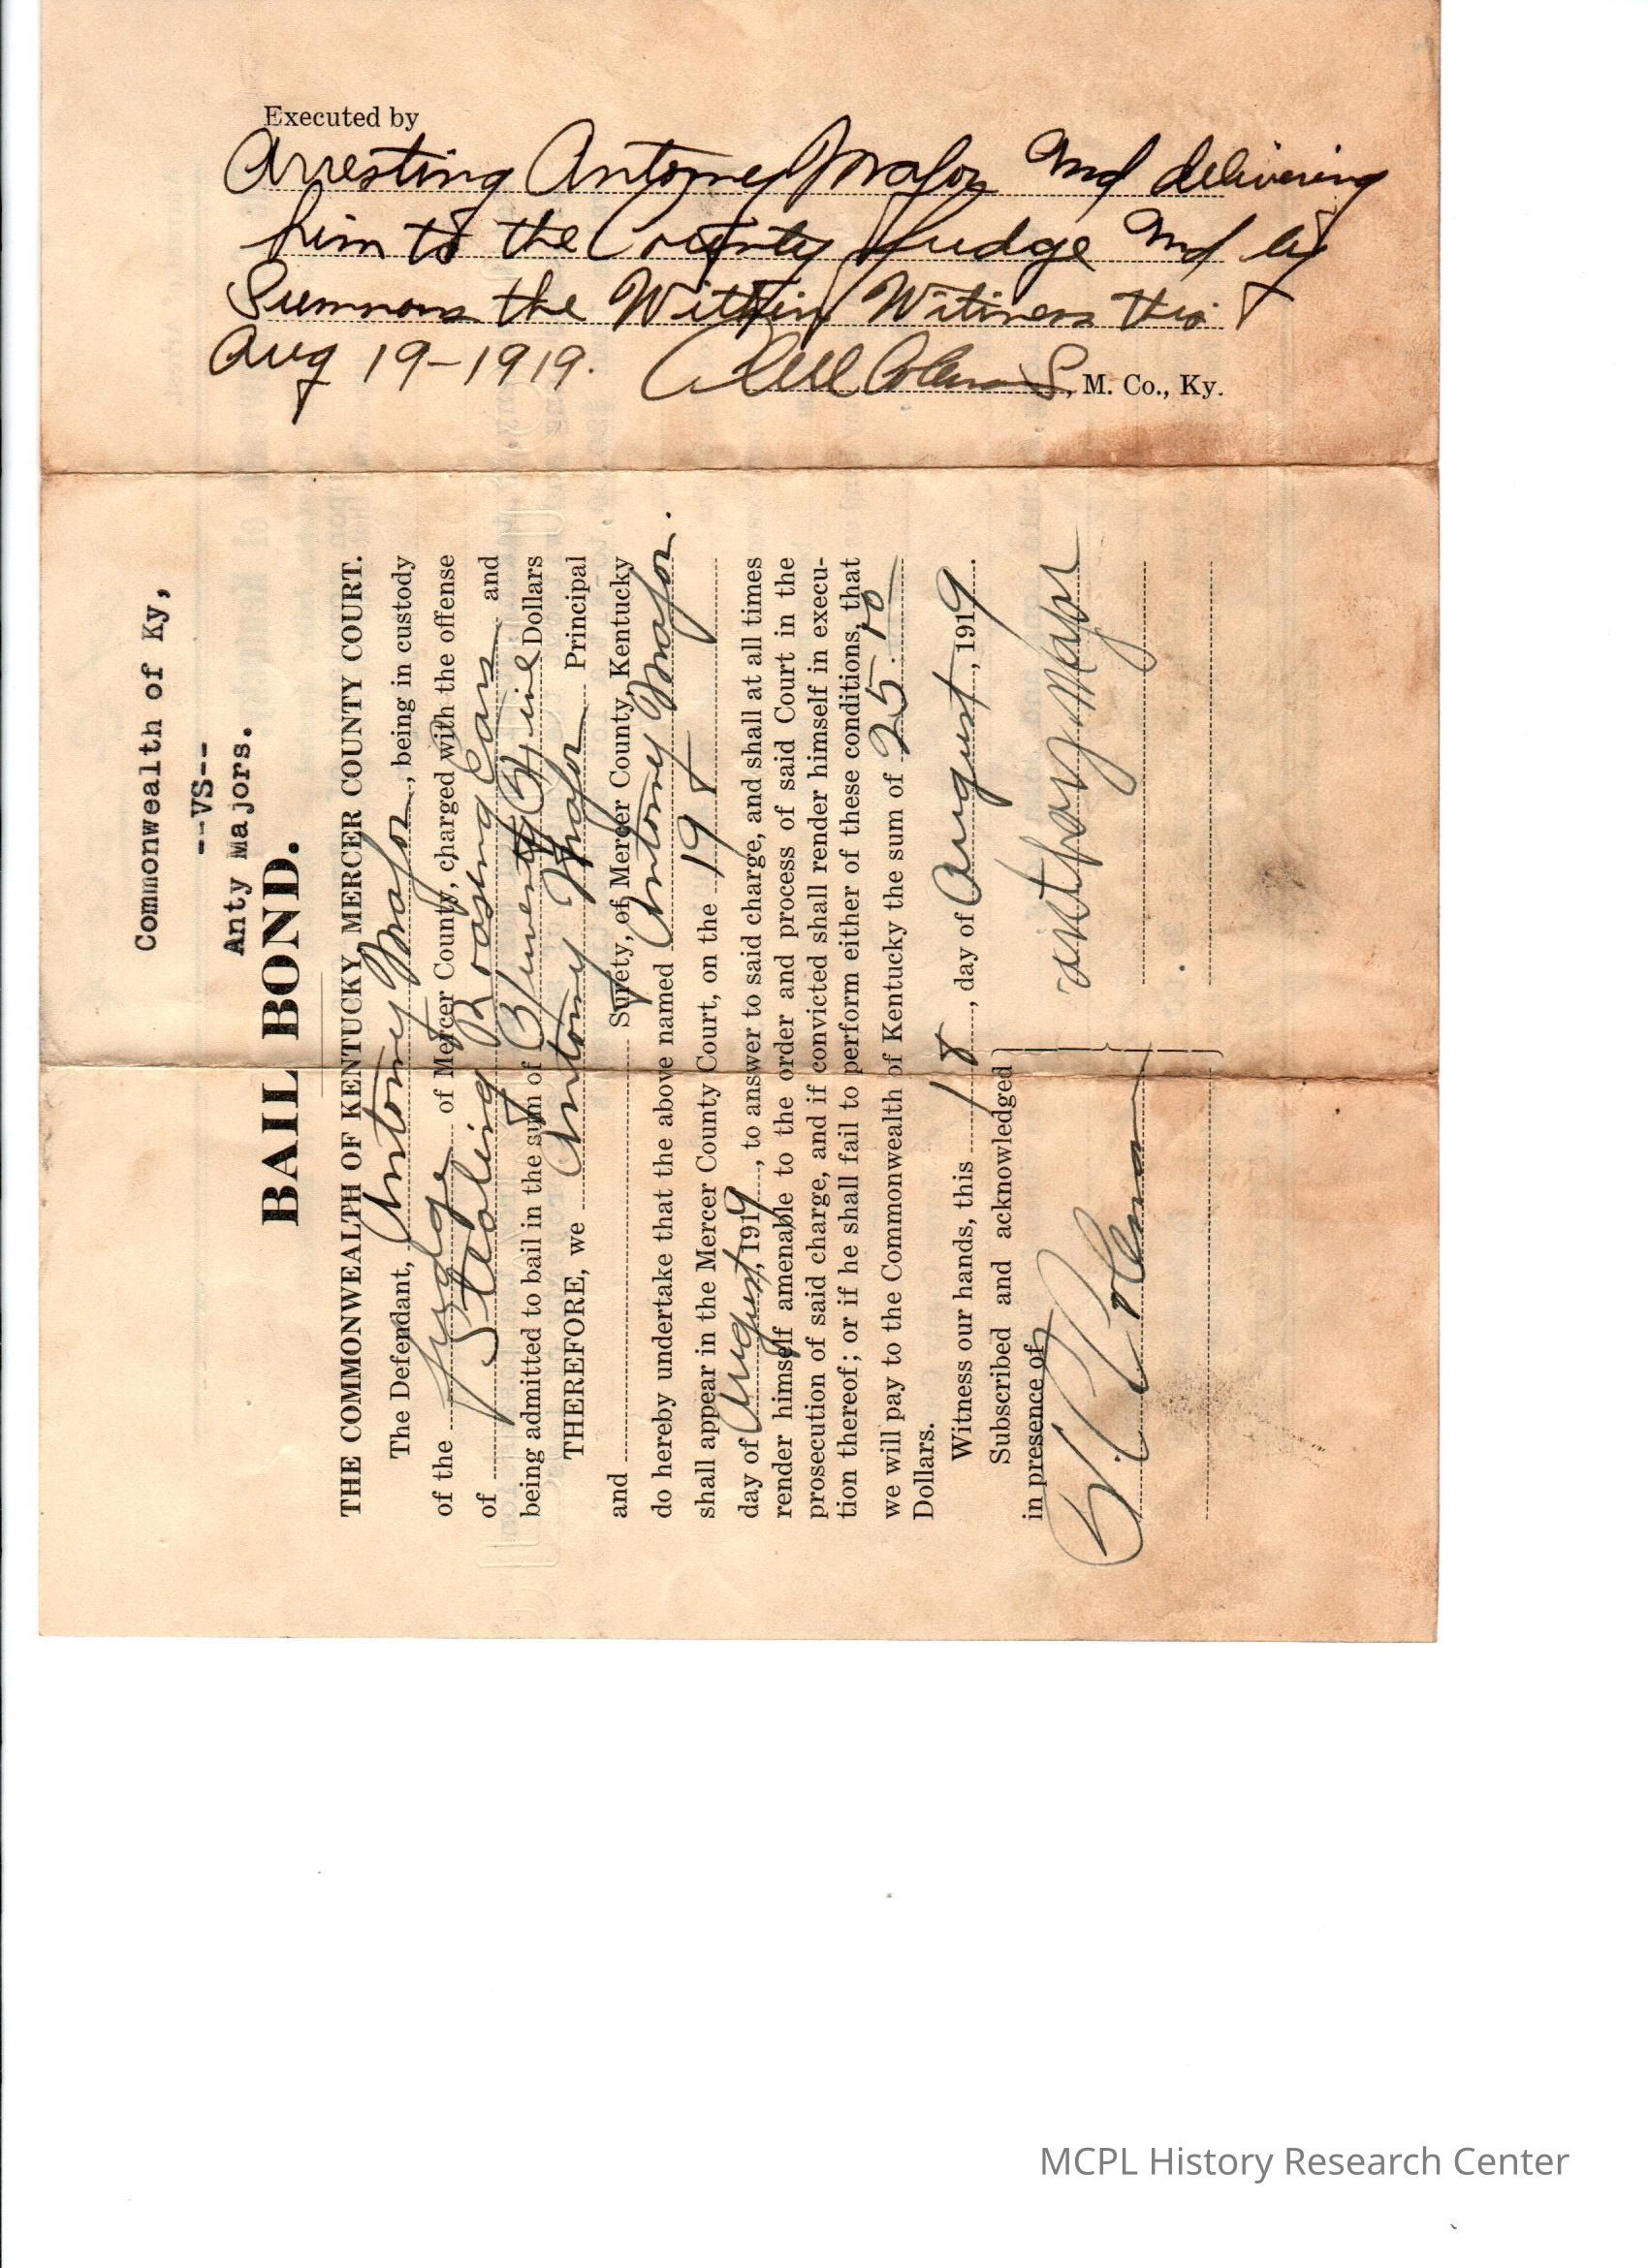 Executed by
Arresting Antoney Major And delivering
him to the County Judge And by
Summons the Within Witiness this
Aug 19-1919. Coleman S., M. Co., Ky.
Commonwealth of Ky,
--VS--
Anty Majors.
BAIL BOND.
THE COMMONWEALTH OF KENTUCKY, MERCER COUNTY COURT.
The Defendant, Antoney Major, being in custody
of the Judge of Mercer County, charged with the offense
of Stealing Roasting Ears and
being admitted to bail in the sum of Dollars
THEREFORE, we Antony Major Principal
and Surety, of Mercer County, Kentucky
do hereby undertake that the above named Antoney Major.
shall appear in the Mercer County Court, on the 19
day of August, 1919, to answer to said charge, and shall at all times
render himself amenable to the order and process of said Court in the
prosecution of said charge, and if convicted shall render himself in execu-
tion thereof; or if he shall fail to perform either of these conditions, that
we will pay to the Commonwealth of Kentucky the sum of 25.00
Dollars.
Witness our hands, this 18, day of August, 1919.
Subscribed and acknowledged
in presence of
Coleman
anthony Major
MCPL History Research Center